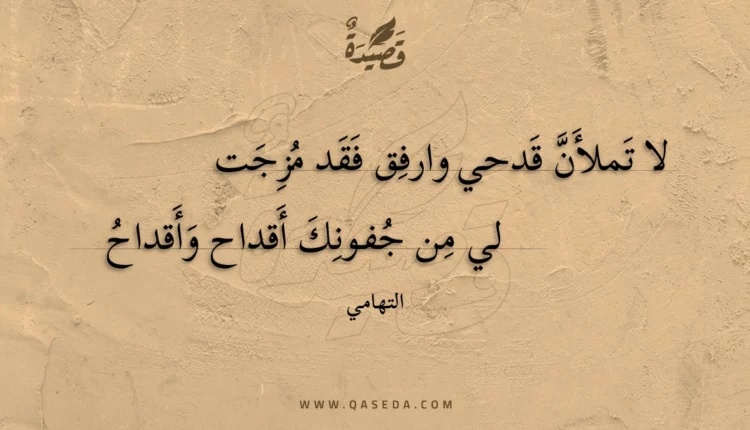 قَصِيْدَةٌ
لا تَملأَنَّ قَدحي وارفِق فَقَد مُزِجَت
لي مِن جُفونِكَ أَقداح وَأَقداحُ
التهامي
WWW.QASEDA.COM